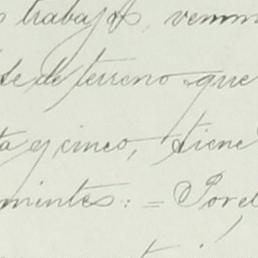 trabajos, 
se de terreno que
ta y cinco, tiene
mintes: = Por el